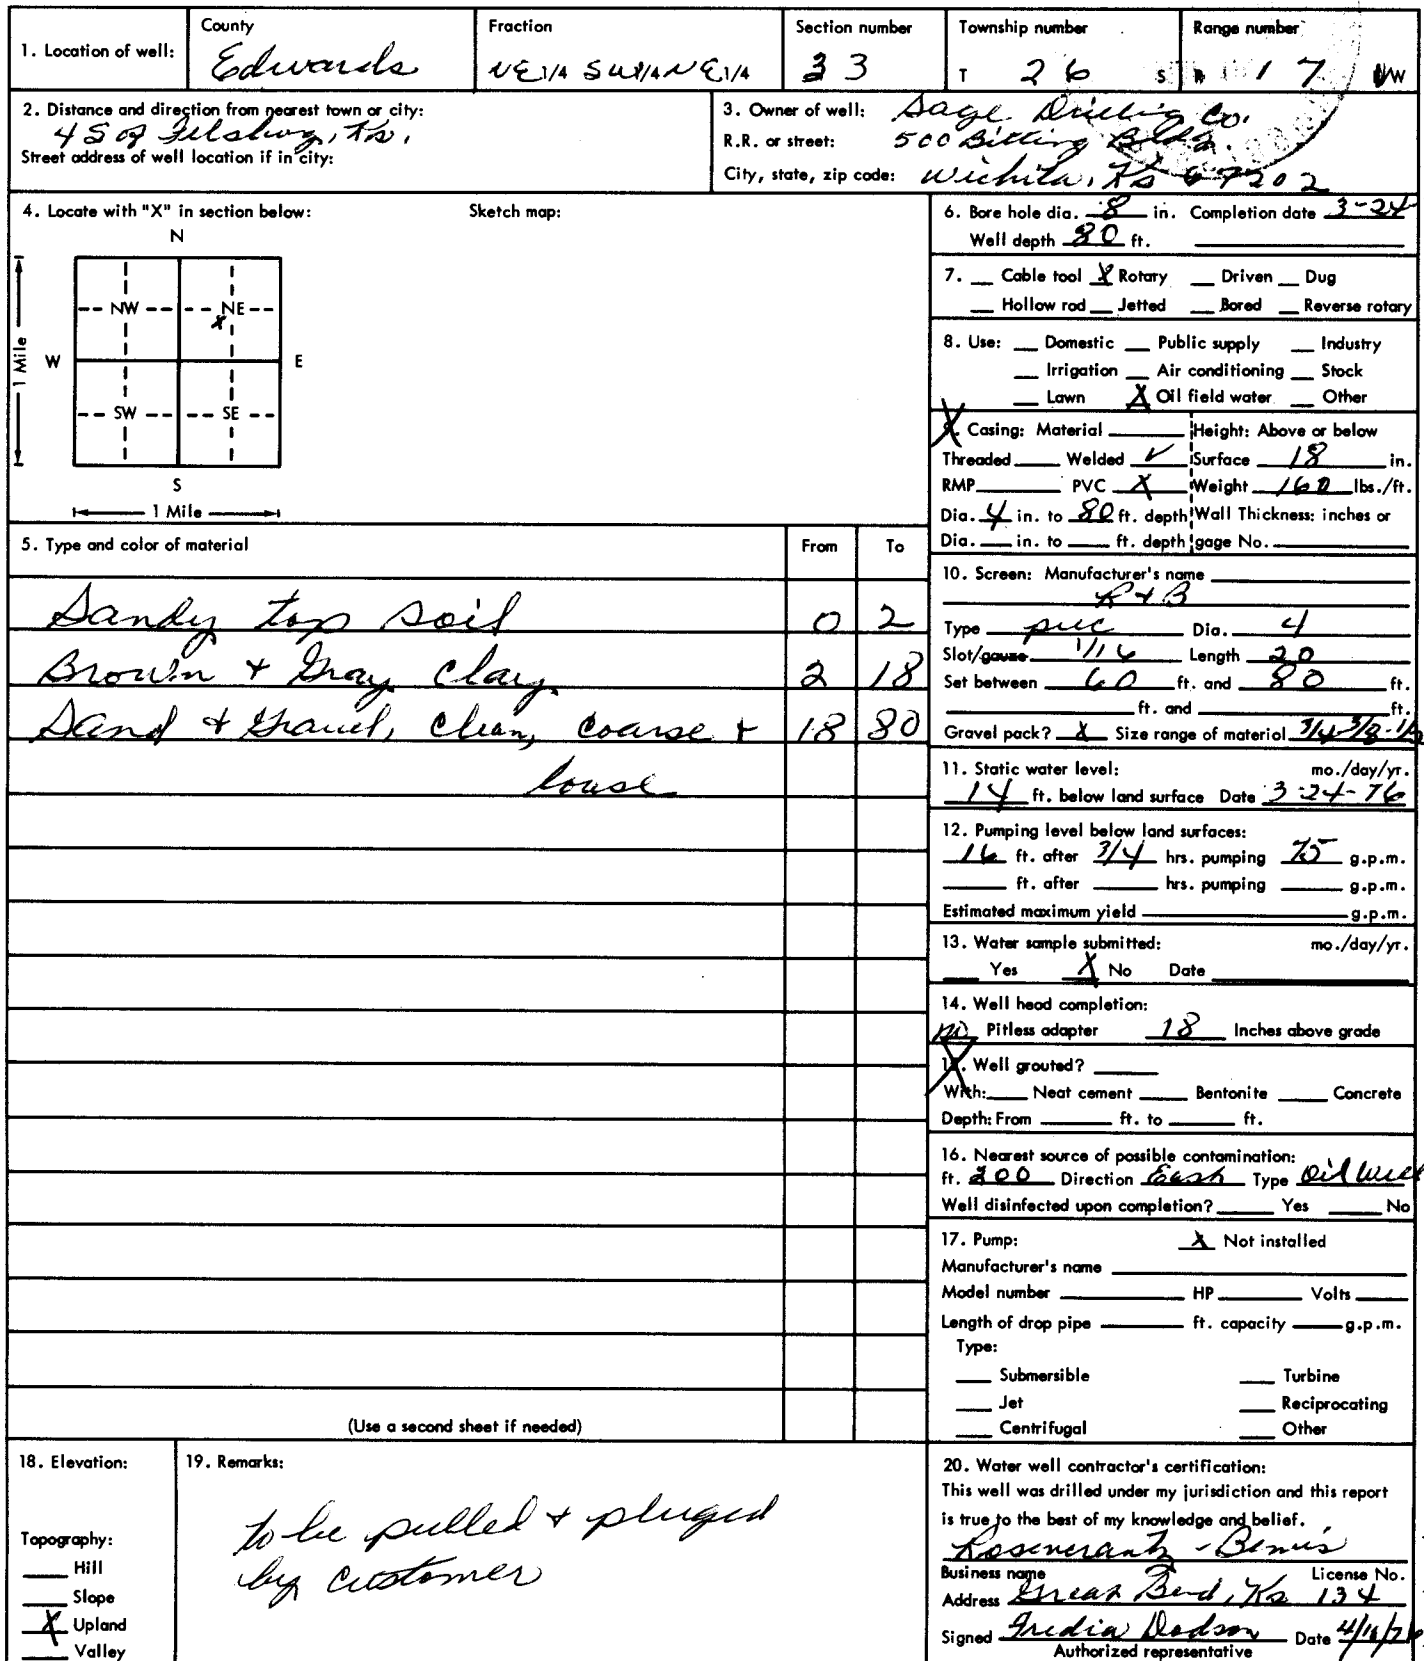 1. Location of well:
County
Edwards
Fraction
NE 1/4 SW 1/4 NE 1/4
Section number
33
Township number
T 26 S
Range number
R 17 E/W
2. Distance and direction from nearest town or city:
4 S of Felsburg, Ks.
Street address of well location if in city:
3. Owner of well: Sage Drilling Co.
R.R. or street: 500 Bitting Bldg.
City, state, zip code: Wichita, Ks 67202
4. Locate with "X" in section below: Sketch map:
N
NW NE
X
W E
1 Mile
SW SE
S
1 Mile
5. Type and color of material From To
Sandy top soil 0 2
Brown + Gray Clay 2 18
Sand + Gravel, Clean, coarse + 18 80
louse
(Use a second sheet if needed)
6. Bore hole dia. 8 in. Completion date 3-24
Well depth 80 ft.
7. __ Cable tool X Rotary __ Driven __ Dug
__ Hollow rod __ Jetted __ Bored __ Reverse rotary
8. Use: __ Domestic __ Public supply __ Industry
__ Irrigation __ Air conditioning __ Stock
__ Lawn X Oil field water __ Other
X. Casing: Material ____ Height: Above or below
Threaded ____ Welded ✓ Surface 18 in.
RMP ____ PVC X Weight 160 lbs./ft.
Dia. 4 in. to 80 ft. depth Wall Thickness: inches or
Dia. __ in. to __ ft. depth gage No. ____
10. Screen: Manufacturer's name ____
R + B
Type pvc Dia. 4
Slot/gauze 1/16 Length 20
Set between 60 ft. and 80 ft.
____ ft. and ____ ft.
Gravel pack? X Size range of material 3/4-3/8-1/2
11. Static water level: mo./day/yr.
14 ft. below land surface Date 3-24-76
12. Pumping level below land surfaces:
16 ft. after 3/4 hrs. pumping 75 g.p.m.
____ ft. after ____ hrs. pumping ____ g.p.m.
Estimated maximum yield ____ g.p.m.
13. Water sample submitted: mo./day/yr.
__ Yes X No Date ____
14. Well head completion:
no Pitless adapter 18 Inches above grade
15. Well grouted? ____
With: __ Neat cement __ Bentonite __ Concrete
Depth: From ____ ft. to ____ ft.
16. Nearest source of possible contamination:
ft. 200 Direction East Type Oil Well
Well disinfected upon completion? ____ Yes ____ No
17. Pump: X Not installed
Manufacturer's name ____
Model number ____ HP ____ Volts ____
Length of drop pipe ____ ft. capacity ____ g.p.m.
Type:
__ Submersible __ Turbine
__ Jet __ Reciprocating
__ Centrifugal __ Other
18. Elevation:
Topography:
__ Hill
__ Slope
X Upland
__ Valley
19. Remarks:
to be pulled + pluged
by customer
20. Water well contractor's certification:
This well was drilled under my jurisdiction and this report
is true to the best of my knowledge and belief.
Rosencrantz - Bemis
Business name License No.
Address Great Bend, Ks 134
Signed Fredia Dodson Date 4/16/76
Authorized representative